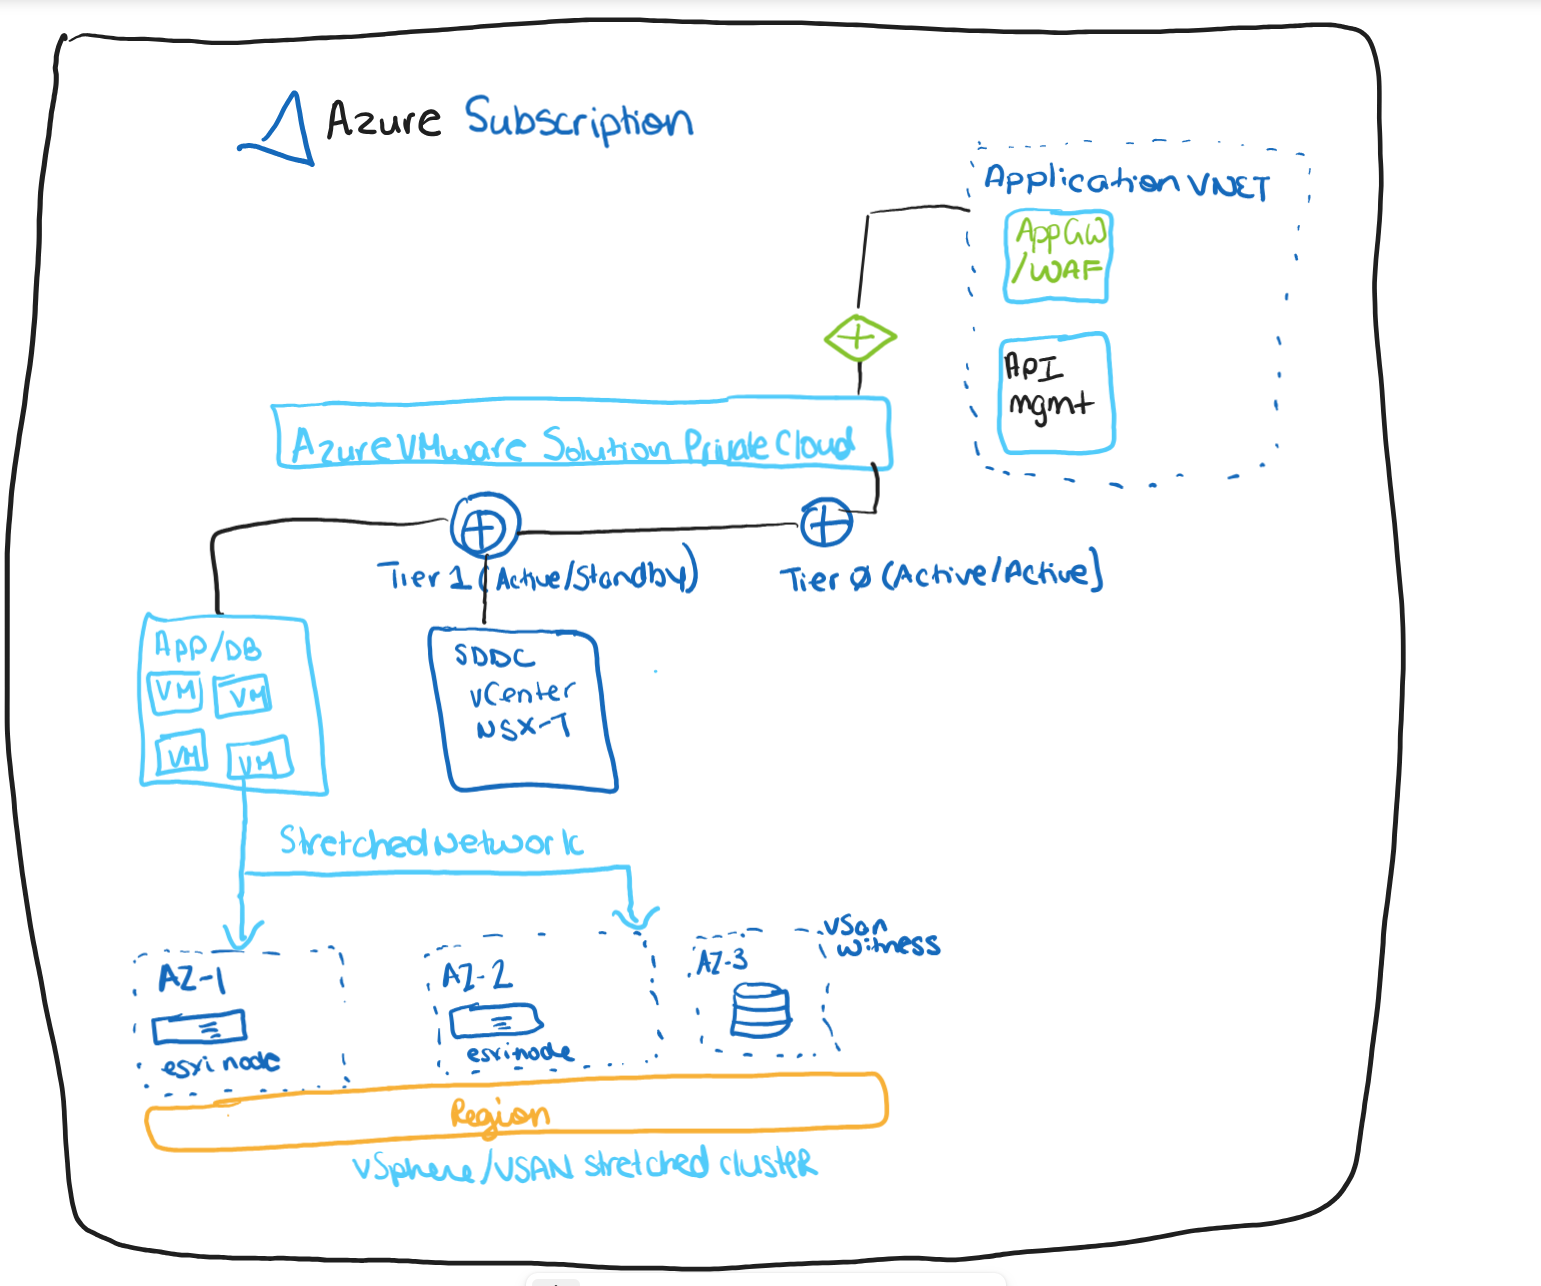 Azure Subscription
Application VNET
AppGW
/WAF
API
mgmt
Azure VMware Solution Private Cloud
Tier 1 (Active/Standby)
Tier 0 (Active/Active]
App/DB
VM
VM
VM
VM
SDDC
vCenter
NSX-T
Stretched Network
AZ-1
esxi node
AZ-2
esxi node
AZ-3
vSan
witness
Region
vSphere/VSAN stretched clusteR